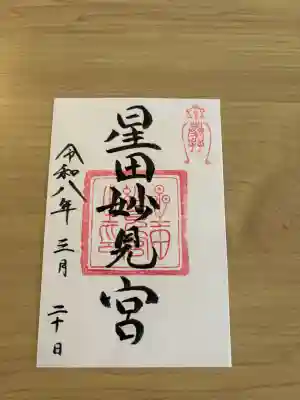 星田妙見宮
令和八年 三月 二十日